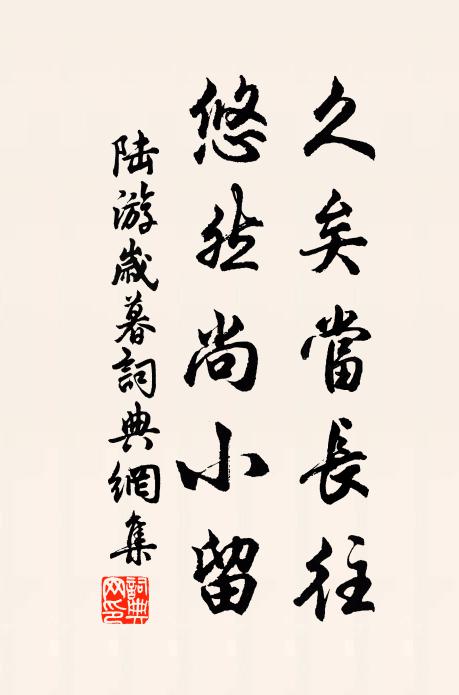 久矣當長往
悠然尚小留
陸游歲暮詞典網集
詞典
网印